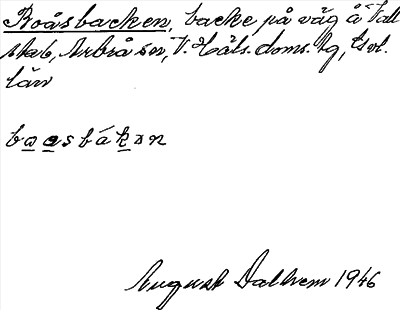 Boåsbacken, backe på väg å Vall
stab, Arbrå sn, V. Häls. doms. tg, Gvl.
län
boasbákan
August Dalhem 1946